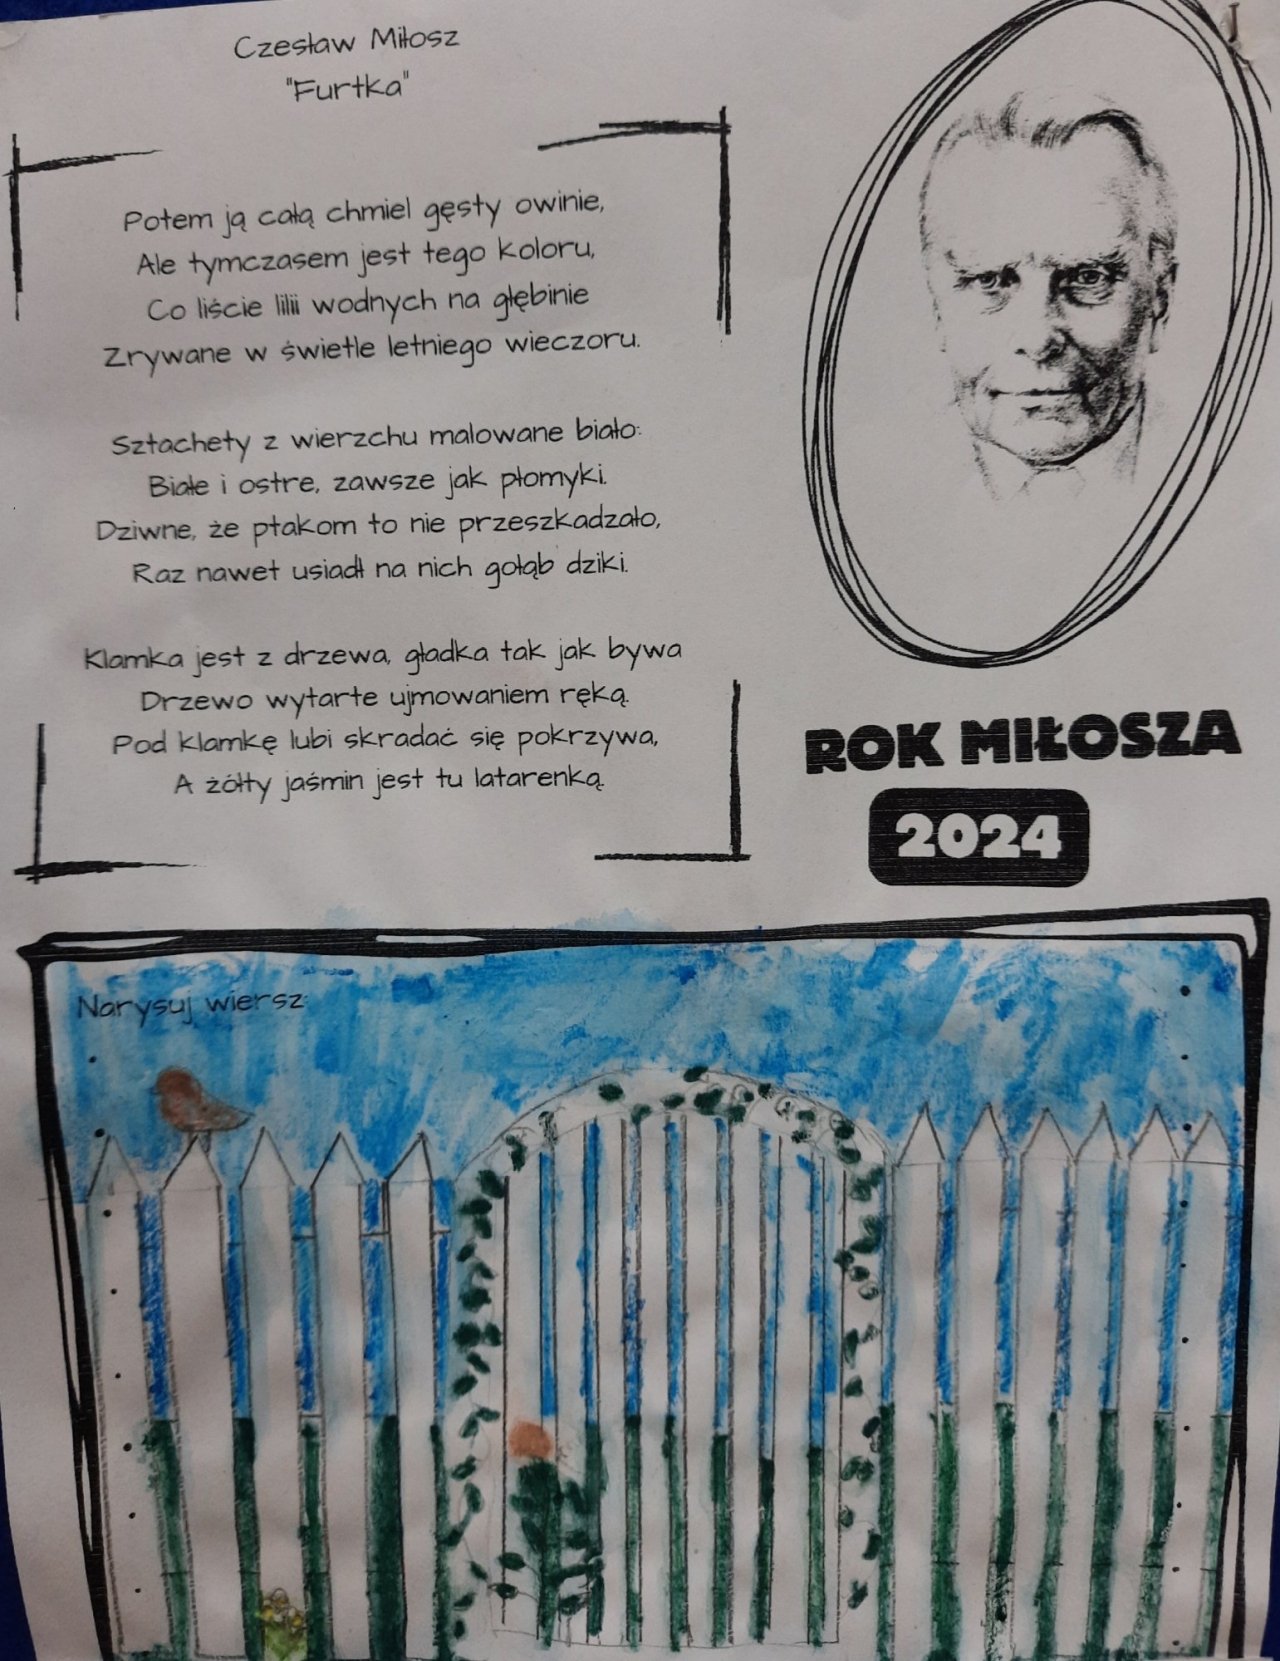 Czesław Miłosz
"Furtka"
Potem ją całą chmiel gęsty owinie,
Ale tymczasem jest tego koloru,
Co liście lilii wodnych na głębinie
Zrywane w świetle letniego wieczoru.
Sztachety z wierzchu malowane biało:
Białe i ostre, zawsze jak płomyki.
Dziwne, że ptakom to nie przeszkadzało,
Raz nawet usiadł na nich gołąb dziki.
Klamka jest z drzewa, gładka tak jak bywa
Drzewo wytarte ujmowaniem ręką.
Pod klamkę lubi skradać się pokrzywa,
A żółty jaśmin jest tu latarenką.
ROK MIŁOSZA
2024
Narysuj wiersz: